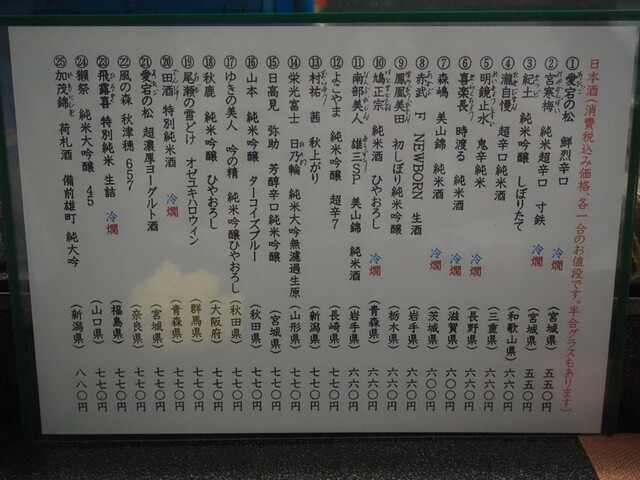 日本酒(消費税込み価格、各一合のお値段です。半合グラスもあります)
①愛宕の松 鮮烈辛口 (宮城県) 五五〇円
②宮寒梅 純米超辛口 寸鉄 冷 燗 (宮城県) 五五〇円
③紀土 純米吟醸 しぼりたて 冷 燗 (和歌山県) 六〇〇円
④瀧自慢 超辛口純米酒 (三重県) 六〇〇円
⑤明鏡止水 鬼辛純米 (長野県) 六六〇円
⑥喜楽長 時渡る 純米酒 冷 燗 (滋賀県) 六〇〇円
⑦森嶋 美山錦 純米酒 冷 燗 (茨城県) 六〇〇円
⑧赤武 F NEWBORN 生酒 (岩手県) 六〇〇円
⑨鳳凰美田 初しぼり純米吟醸 (栃木県) 六六〇円
⑩鳩正宗 純米酒 ひやおろし 冷 燗 (青森県) 六六〇円
⑪南部美人 雄三SP 美山錦 純米酒 (岩手県) 六六〇円
⑫よこやま 純米吟醸 超辛7 (長崎県) 六六〇円
⑬村祐 茜 秋上がり (新潟県) 七七〇円
⑭栄光冨士 日乃輪 純米大吟無濾過生原 (山形県) 七七〇円
⑮日高見 弥助 芳醇辛口純米吟醸 (宮城県) 七七〇円
⑯山本 純米吟醸 ターコイズブルー (秋田県) 七七〇円
⑰ゆきの美人 吟の精 純米吟醸ひやおろし (秋田県) 七七〇円
⑱秋鹿 純米吟醸 ひやおろし (大阪府) 七七〇円
⑲尾瀬の雪どけ オゼユキハロウィン (群馬県) 七七〇円
⑳田酒 特別純米酒 冷 燗 (青森県) 七七〇円
㉑愛宕の松 超濃厚ヨーグルト酒 (宮城県) 七七〇円
㉒風の森 秋津穂 657 (奈良県) 七七〇円
㉓飛露喜 特別純米 生詰 冷 燗 (福島県) 七七〇円
㉔獺祭 純米大吟醸 45 (山口県) 七七〇円
㉕加茂錦 荷札酒 備前雄町 純大吟 (新潟県) 八八〇円